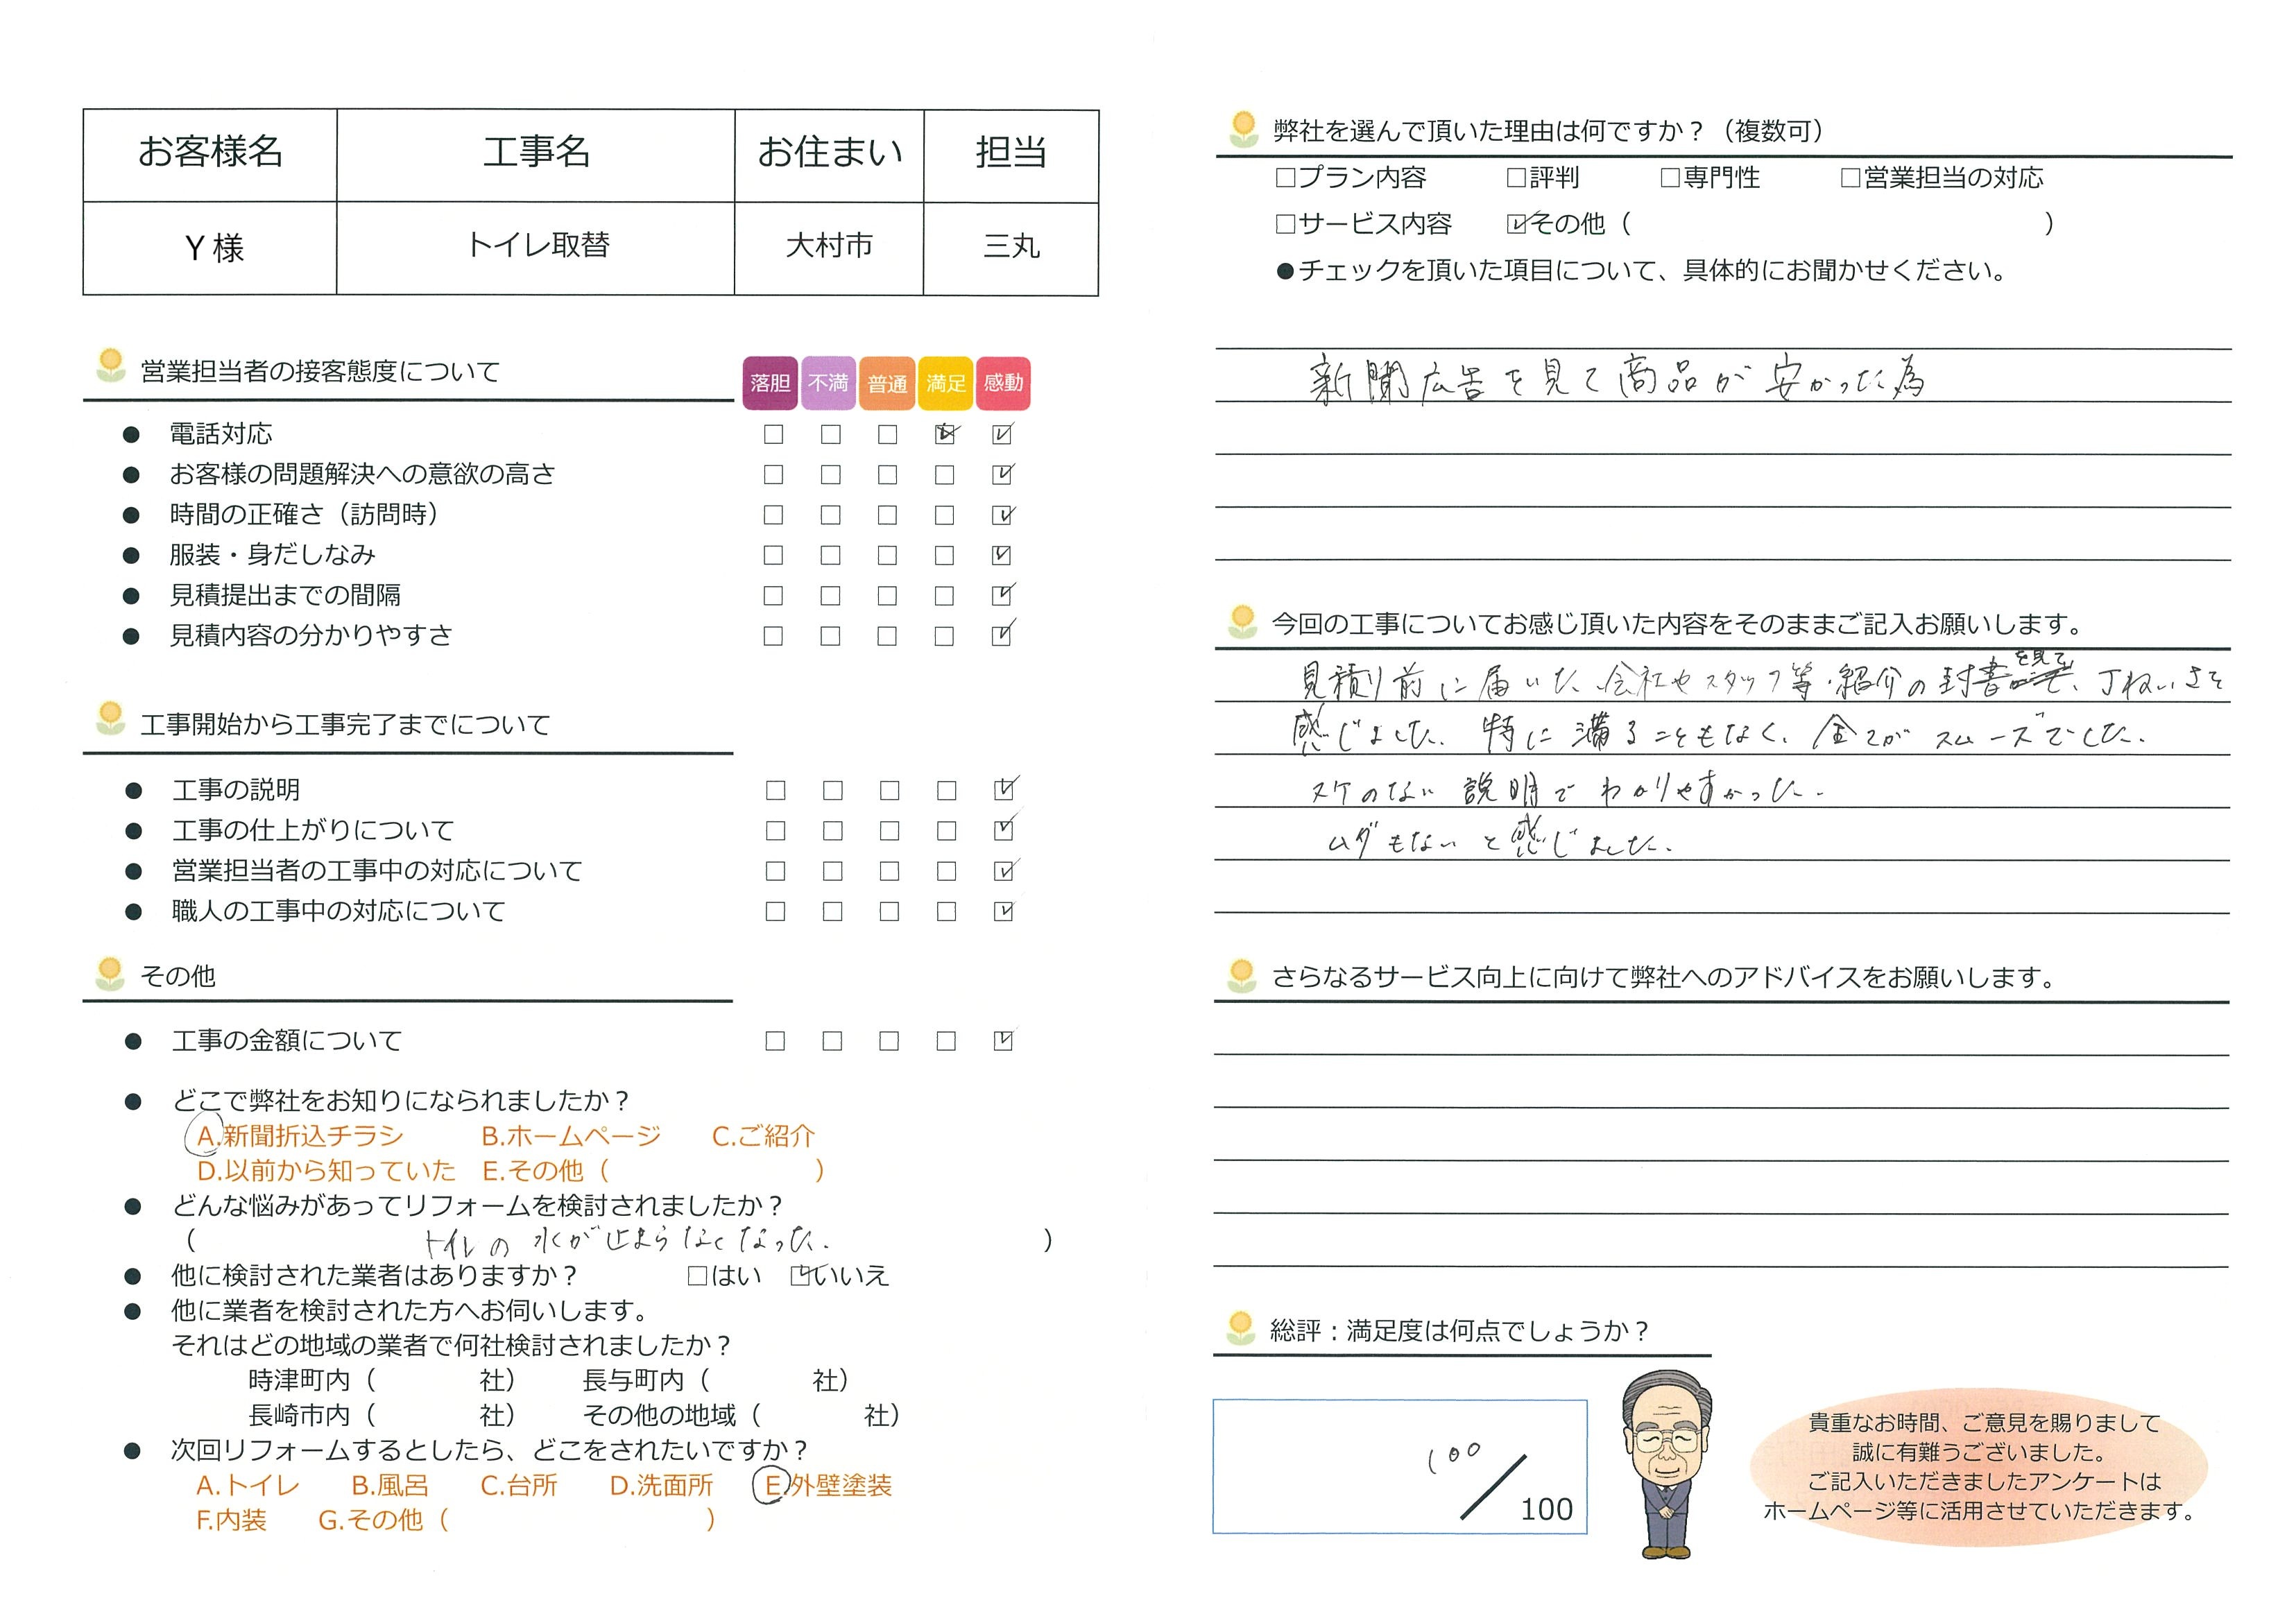 お客様名 工事名 お住まい 担当
Y様 トイレ取替 大村市 三丸
営業担当者の接客態度について 落胆 不満 普通 満足 感動
● 電話対応 □ □ □ ☑ ☑
● お客様の問題解決への意欲の高さ □ □ □ □ ☑
● 時間の正確さ（訪問時） □ □ □ □ ☑
● 服装・身だしなみ □ □ □ □ ☑
● 見積提出までの間隔 □ □ □ □ ☑
● 見積内容の分かりやすさ □ □ □ □ ☑
工事開始から工事完了までについて
● 工事の説明 □ □ □ □ ☑
● 工事の仕上がりについて □ □ □ □ ☑
● 営業担当者の工事中の対応について □ □ □ □ ☑
● 職人の工事中の対応について □ □ □ □ ☑
その他
● 工事の金額について □ □ □ □ ☑
● どこで弊社をお知りになられましたか？
A.新聞折込チラシ B.ホームページ C.ご紹介
D.以前から知っていた E.その他（ ）
● どんな悩みがあってリフォームを検討されましたか？
（ トイレの水が止まらなくなった. ）
● 他に検討された業者はありますか？ □はい ☑いいえ
● 他に業者を検討された方へお伺いします。
それはどの地域の業者で何社検討されましたか？
時津町内（ 社） 長与町内（ 社）
長崎市内（ 社） その他の地域（ 社）
● 次回リフォームするとしたら、どこをされたいですか？
A.トイレ B.風呂 C.台所 D.洗面所 E.外壁塗装
F.内装 G.その他（ ）
弊社を選んで頂いた理由は何ですか？（複数可）
□プラン内容 □評判 □専門性 □営業担当の対応
□サービス内容 ☑その他（ ）
●チェックを頂いた項目について、具体的にお聞かせください。
新聞広告を見て商品が安かった為
今回の工事についてお感じ頂いた内容をそのままご記入お願いします。
見積り前に届いた、会社やスタッフ等紹介の封書を見て、丁ねいさを
感じました. 特に滞ることもなく、全てがスムーズでした.
ヌケのない説明でわかりやすかった.
ムダもないと感じました.
さらなるサービス向上に向けて弊社へのアドバイスをお願いします。
総評：満足度は何点でしょうか？
100／100
貴重なお時間、ご意見を賜りまして
誠に有難うございました。
ご記入いただきましたアンケートは
ホームページ等に活用させていただきます。